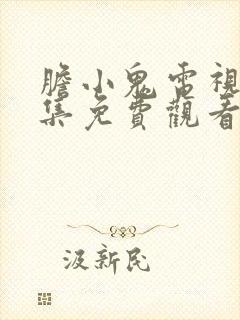 膽小鬼電視
集免費觀看
汲新民